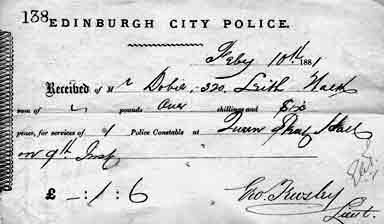 138 EDINBURGH CITY POLICE.
Feby 10th 1881
Received of Mr Dobie, 320, Leith Walk
sum of pounds One shillings and Six
pence, for services of 1 Police Constable at
on 9th Inst
£ -:1:6
Geo.
Lieut.